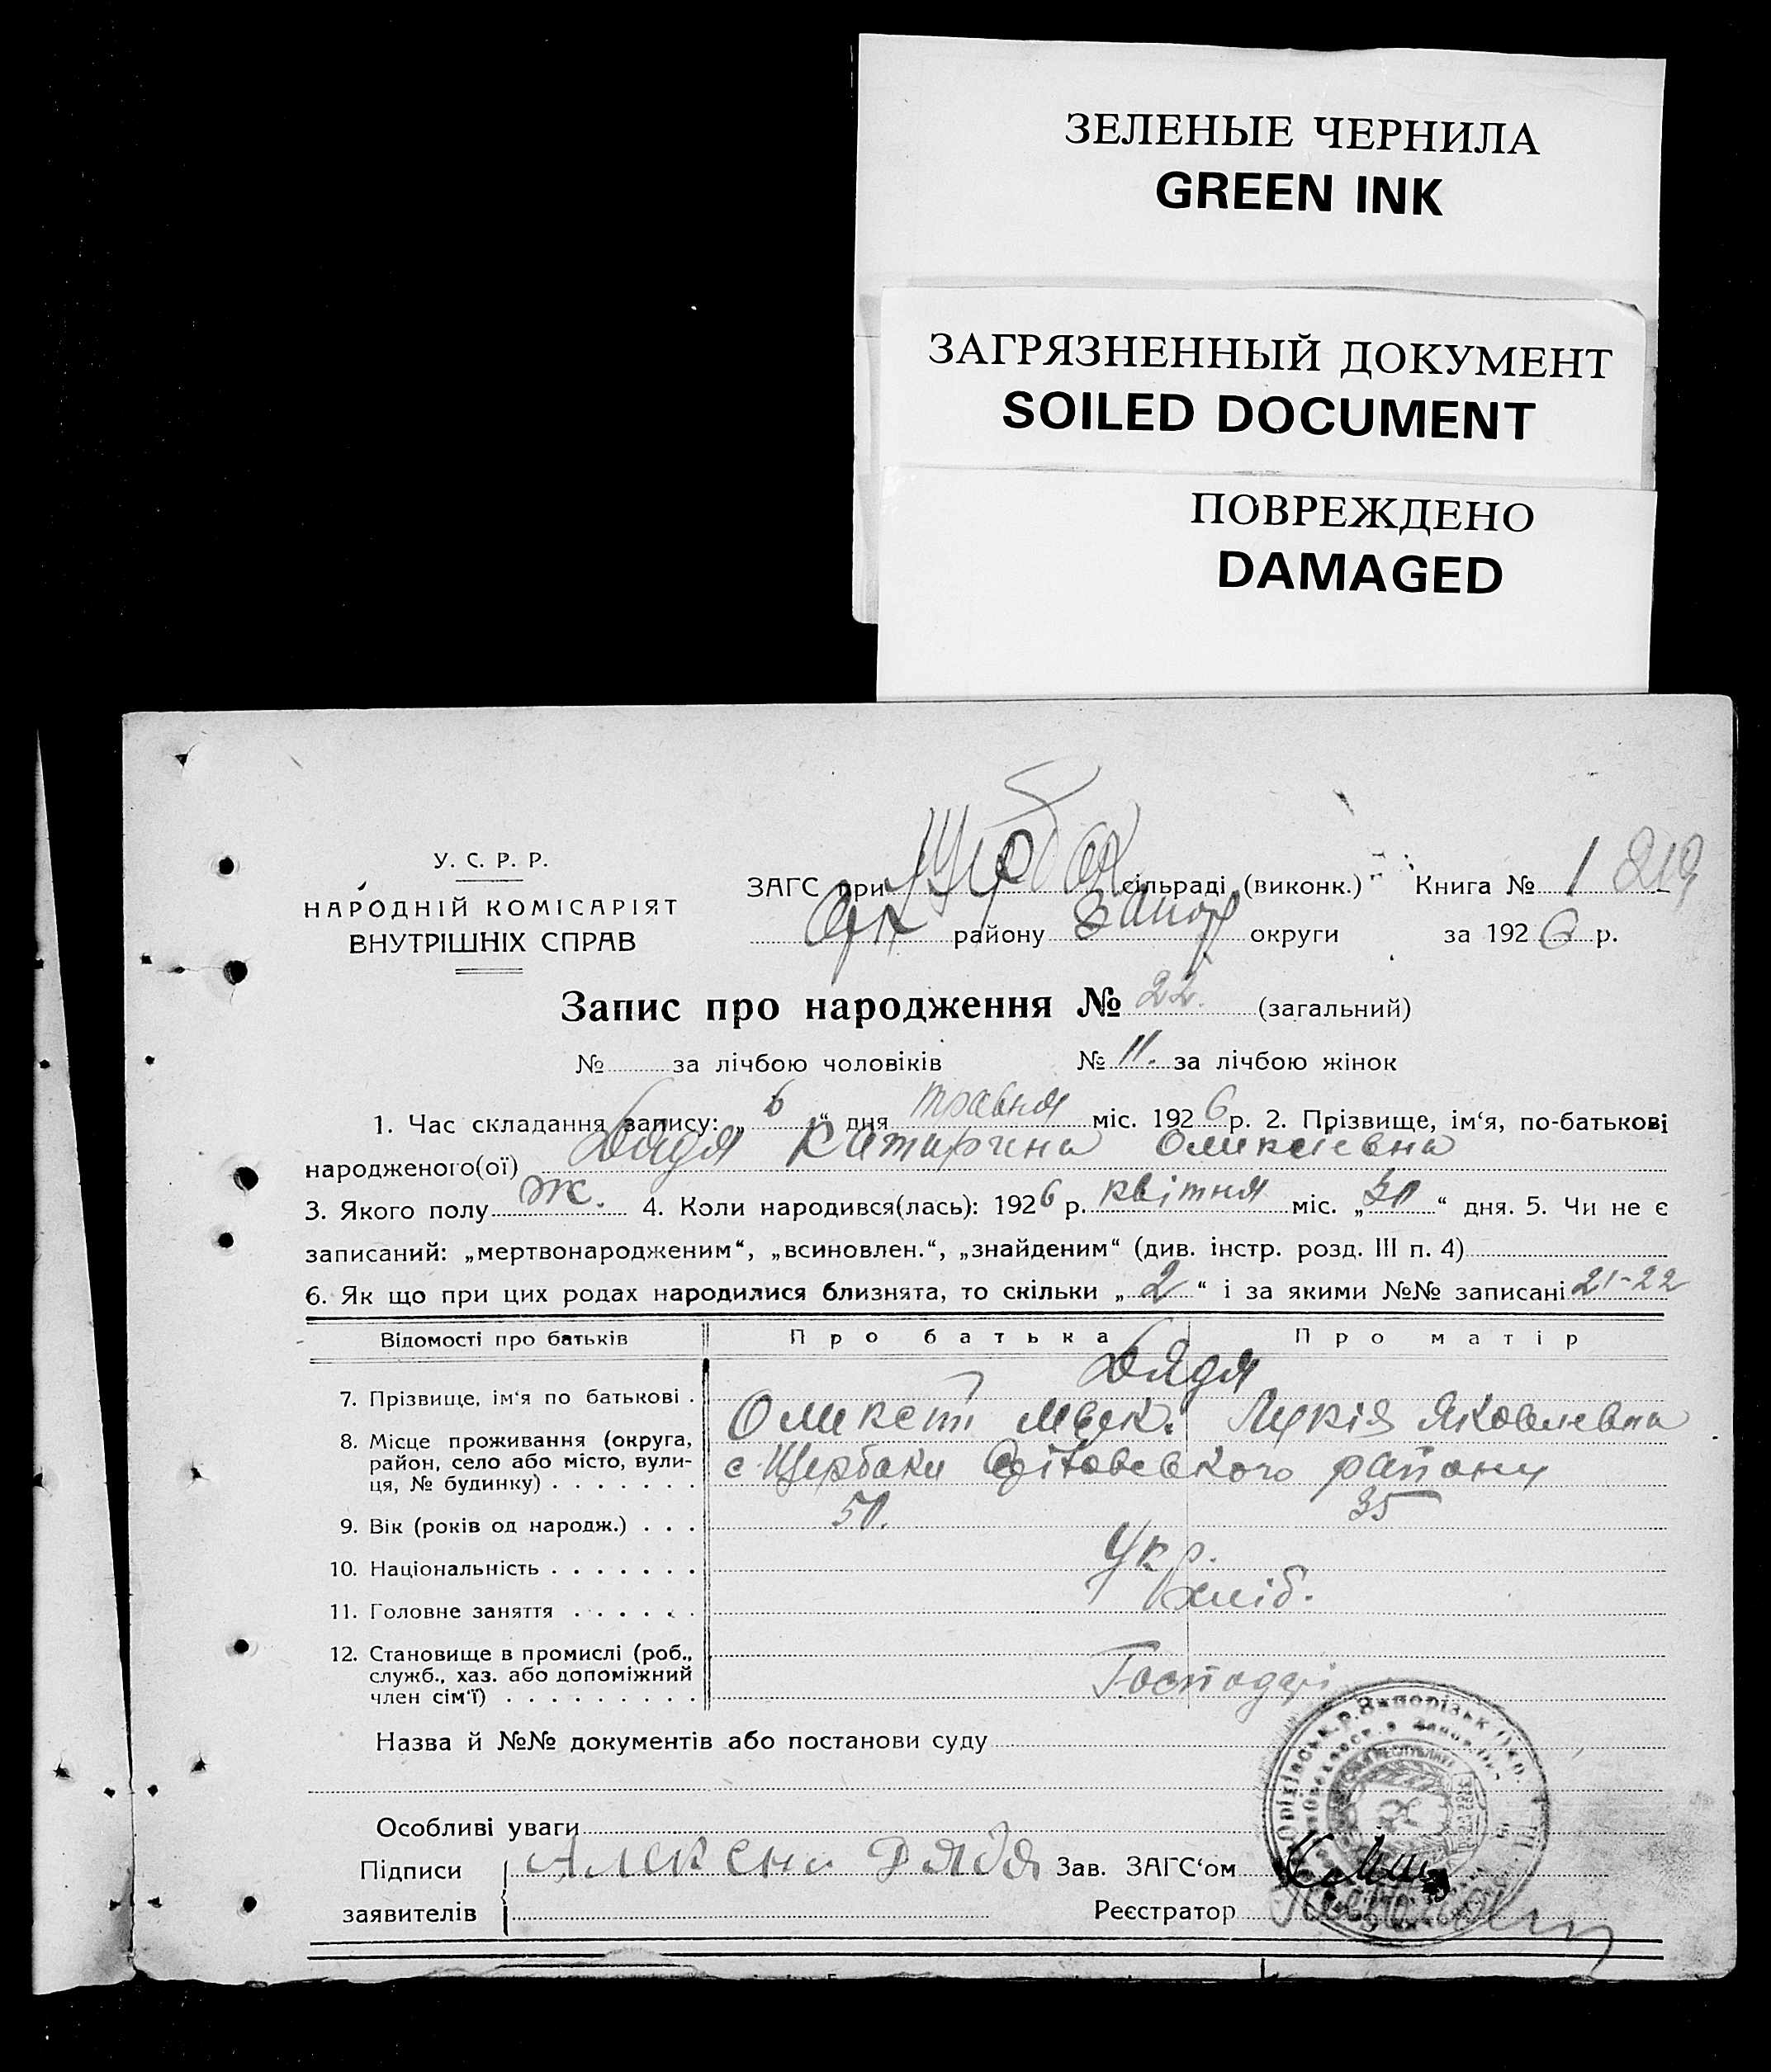 ЗЕЛЕНЫЕ ЧЕРНИЛА
GREEN INK
ЗАГРЯЗНЕННЫЙ ДОКУМЕНТ
SOILED DOCUMENT
ПОВРЕЖДЕНО
DAMAGED
У. С. Р. Р.
НАРОДНІЙ КОМІСАРІЯТ
ВНУТРІШНІХ СПРАВ
ЗАГС при сільраді (виконк.) Книга № 1 219
Оріх району Запор округи за 1926 р.
Запис про народження № 22. (загальний)
№ за лічбою чоловіків № 11. за лічбою жінок
1. Час складання запису: „6“ дня травня міс. 1926 р. 2. Прізвище, ім‘я, по-батькові
народженого(ої) Дядя Катирина Оликсіевна
3. Якого полу Ж. 4. Коли народився(лась): 1926 р. квітня міс. „30“ дня. 5. Чи не є
записаний: „мертвонародженим“, „всиновлен.“, „знайденим“ (див. інстр. розд. III п. 4)
6. Як що при цих родах народилися близнята, то скільки „2“ і за якими №№ записані 21-22
Відомості про батьків Про батька Про матір
Дядя
7. Прізвище, ім‘я по батькові . Оликсій Лукія Яковлевна
8. Місце проживання (округа, район, село або місто, вулиця, № будинку) . . . . . . . с Щербаки району
9. Вік (років од народж.) . . . 50. 35
10. Національність . . . . . . . Укр.
11. Головне заняття . . . . . . хліб.
12. Становище в промислі (роб., служб., хаз. або допоміжний член сім‘ї) . . . . . . . . . Господарі
Назва й №№ документів або постанови суду
Особливі уваги
Підписи Алексей Дядя Зав. ЗАГС‘ом
заявителів Реєстратор